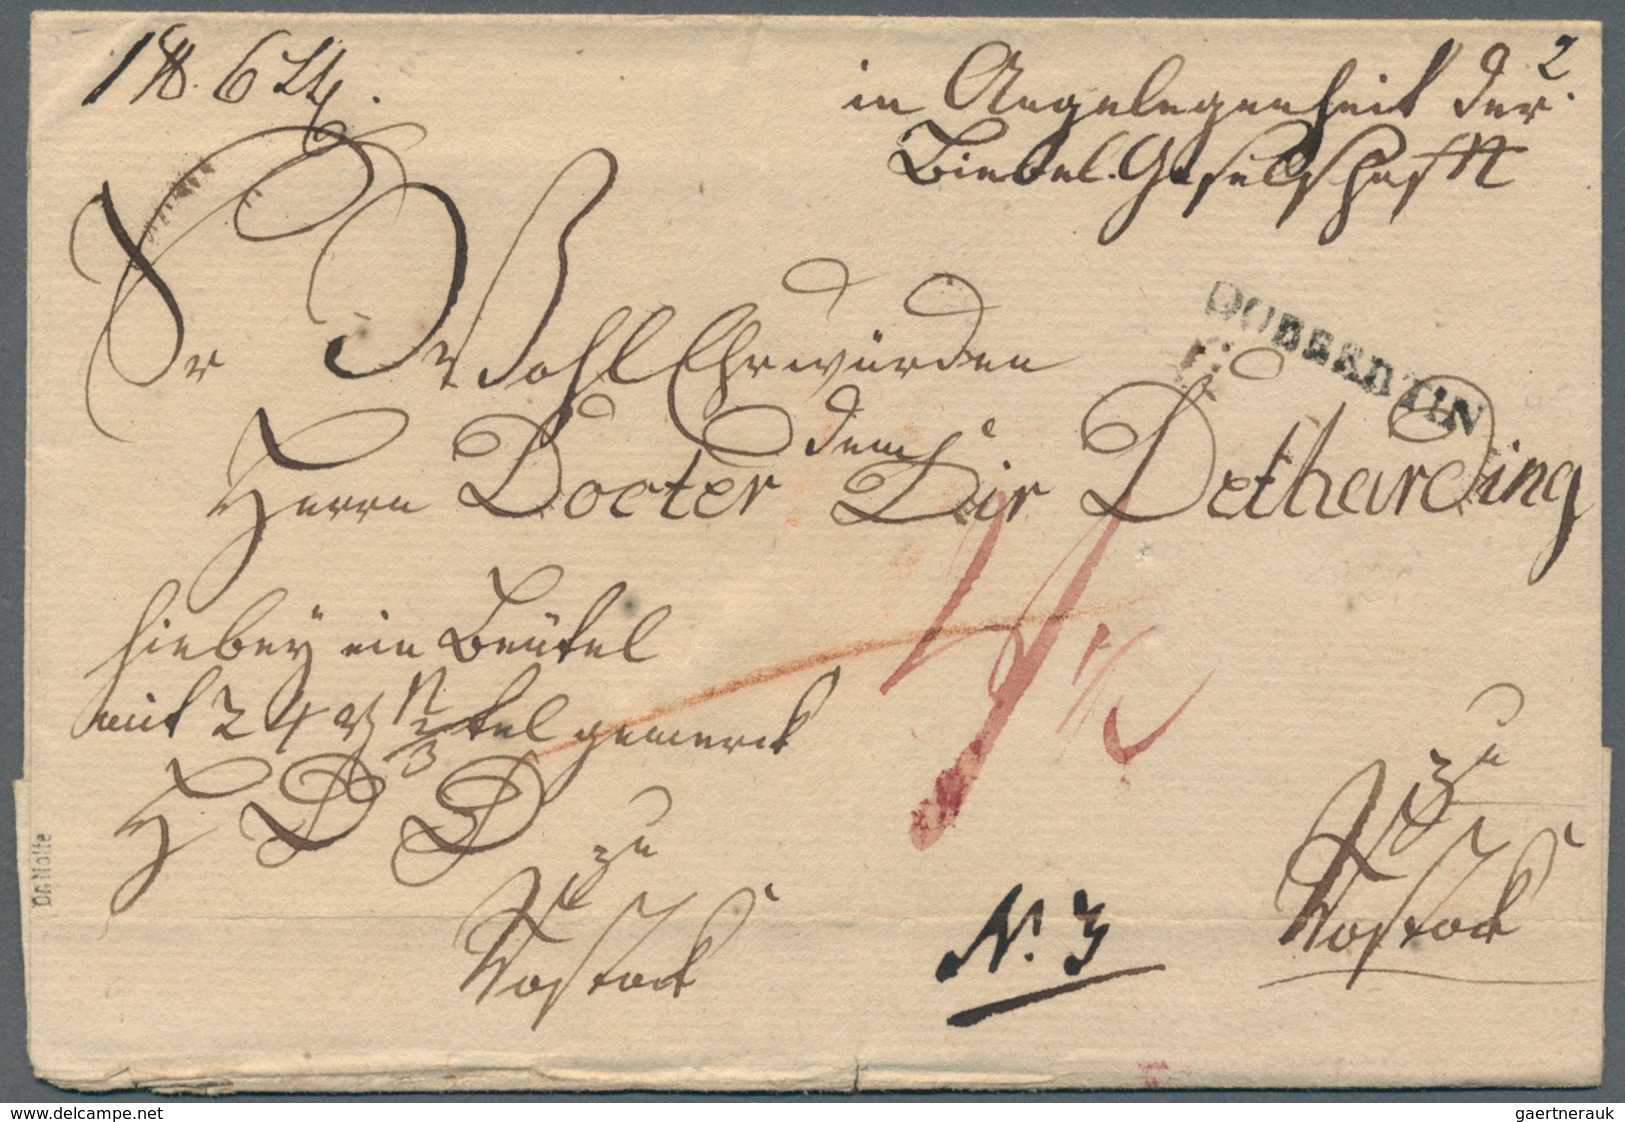 1 ℔. 6 Lth.
2
in Angelegenheit der
Biebel. Geselschaft
DOBBERTIN
Sr Wohl Ehrwürden
dem
Herrn Docter Dir Detharding
hiebey ein Beütel
mit 24 rf N 2/3 tel gemerck
H D D
4 1/2
zu
Rostock
N. 3
zu
Rostock
Dr. Nolte
www.delcampe.net
gaertnerauk